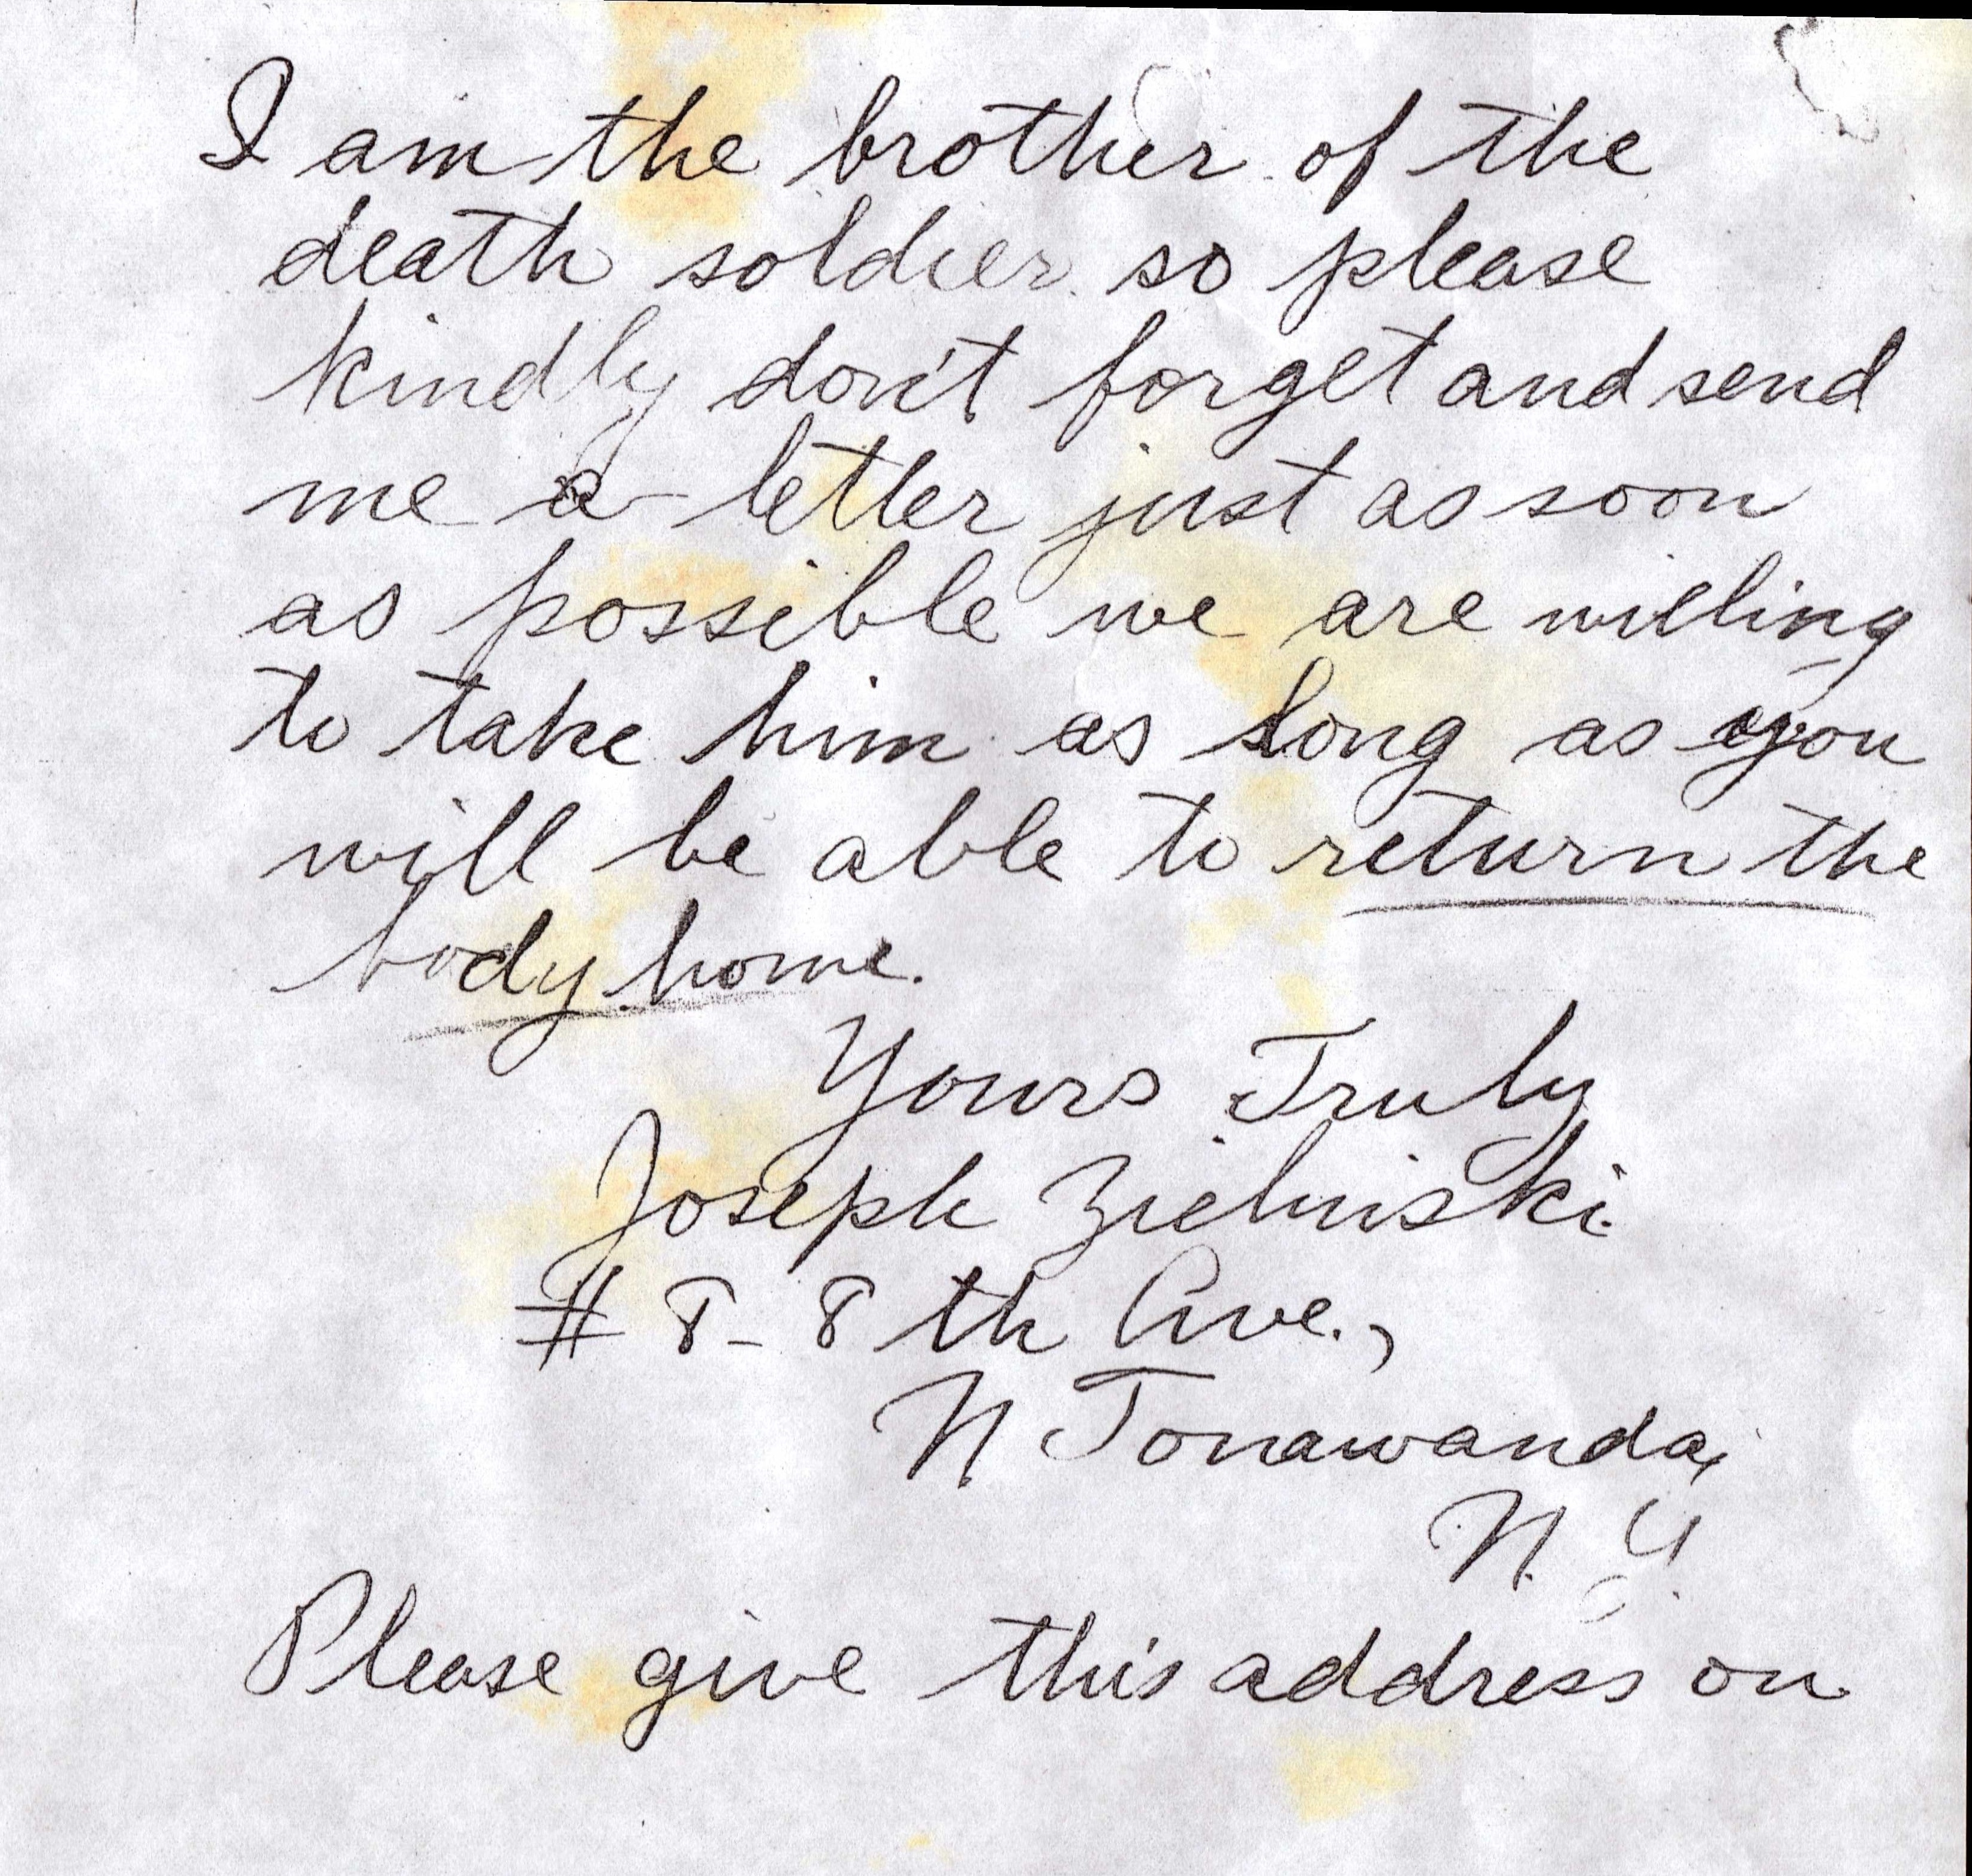 I am the brother of the
death soldier so please
kindly don't forget and send
me a letter just as soon
as possible we are willing
to take him as long as you
will be able to return the
body home.
Yours Truly
Joseph Zielinski
# 8-8th Ave.,
N Tonawanda,
N.Y.
Please give this address on